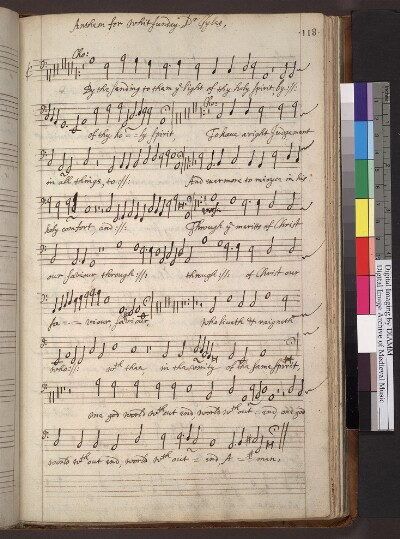 Anthem for Whitsunday Dr Gyles.
·113·
Cho:
By the sending to them ye light of thy holy spirit, by ://:
Cho:
of thy ho = = ly spirit To have a right Judgement
in all things, to ://: And evermore to rejoyce in his
holy comfort and ://: Through ye merits of Christ
our saviour through ://: through ://: of Christ our
sa = = viour, our, who liveth & raigneth
who ://: wth thee, in the unity of the same spirit,
one god world wth out end world wth out = end, one god
world wth out end, world wth out = end, A = = men,
Digital Imaging by DIAMM
Digital Image Archive of Medieval Music